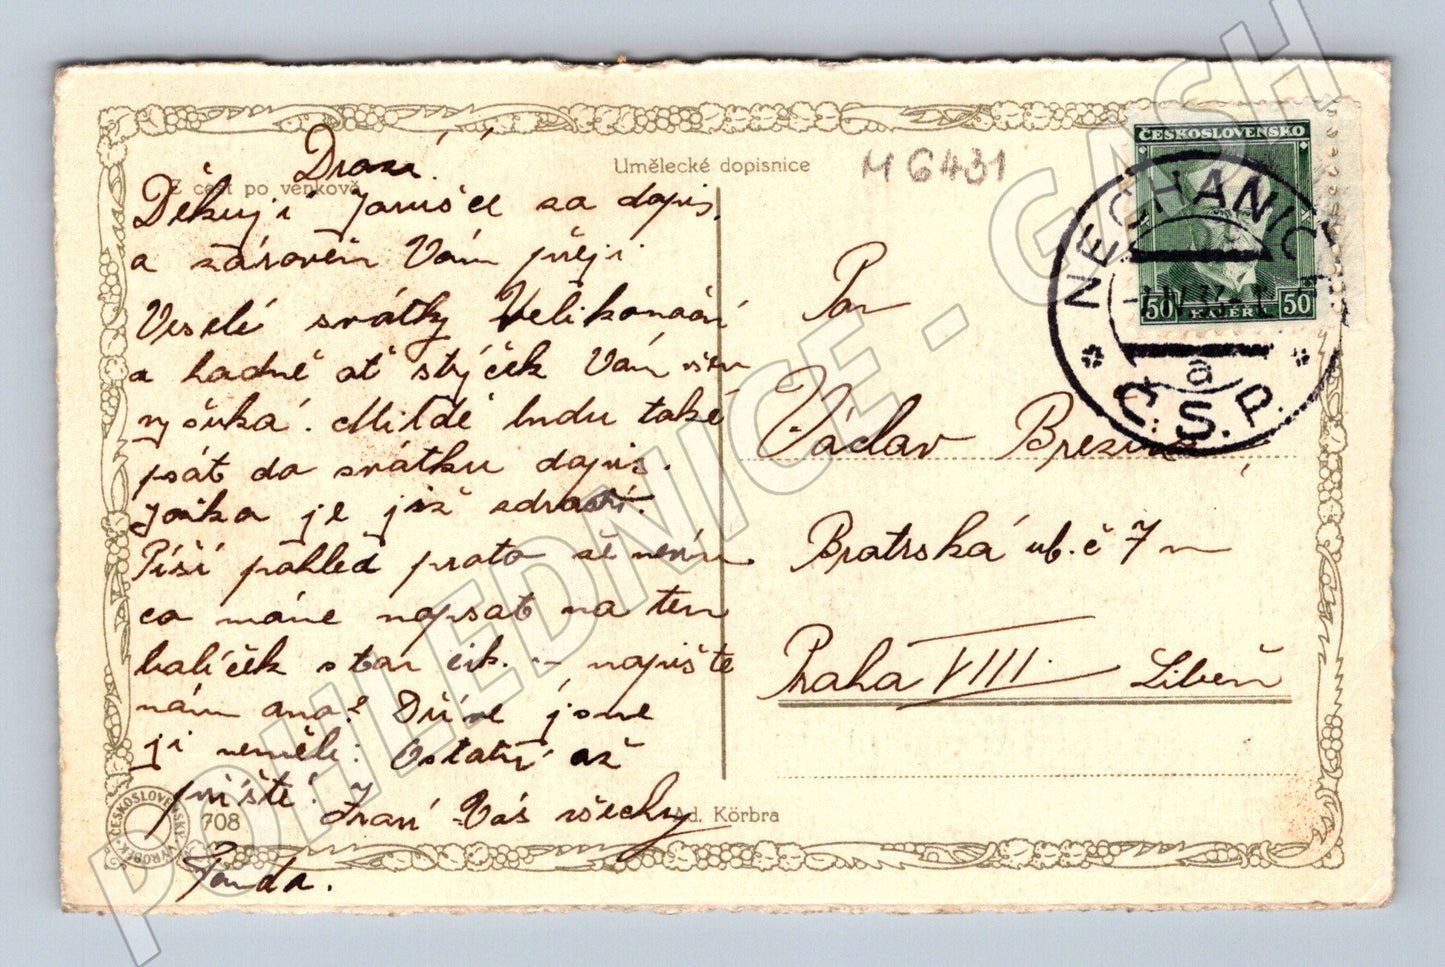 Umělecké dopisnice
M 6431
Z cest po venkově
Drazí!
Děkuji Jarušce za dopis,
a zároveň Vám přeji
Veselé svátky Velikonoční
a hodně at strýček Vám
vyšuká. Mildé budu také
psát do svátku dopis.
Joška je již zdravý.
Píši pohled proto že nevím
co máme napsat na ten
balíček star cirk. – napište
nám ano? Dříve jsme
ji neměli. Ostatní až
příště! Zdraví Vás všechny
Ponda.
Pan
Václav Brezina,
Bratrská ul. č 7
Praha VIII. Libeň
ČESKOSLOVENSKO
50 HALÉŘŮ 50
NECHANICE
a
Č.S.P.
ČESKOSLOVENSKÝ VÝROBEK
708
Ad. Körbra
POHLEDNICE - GASH